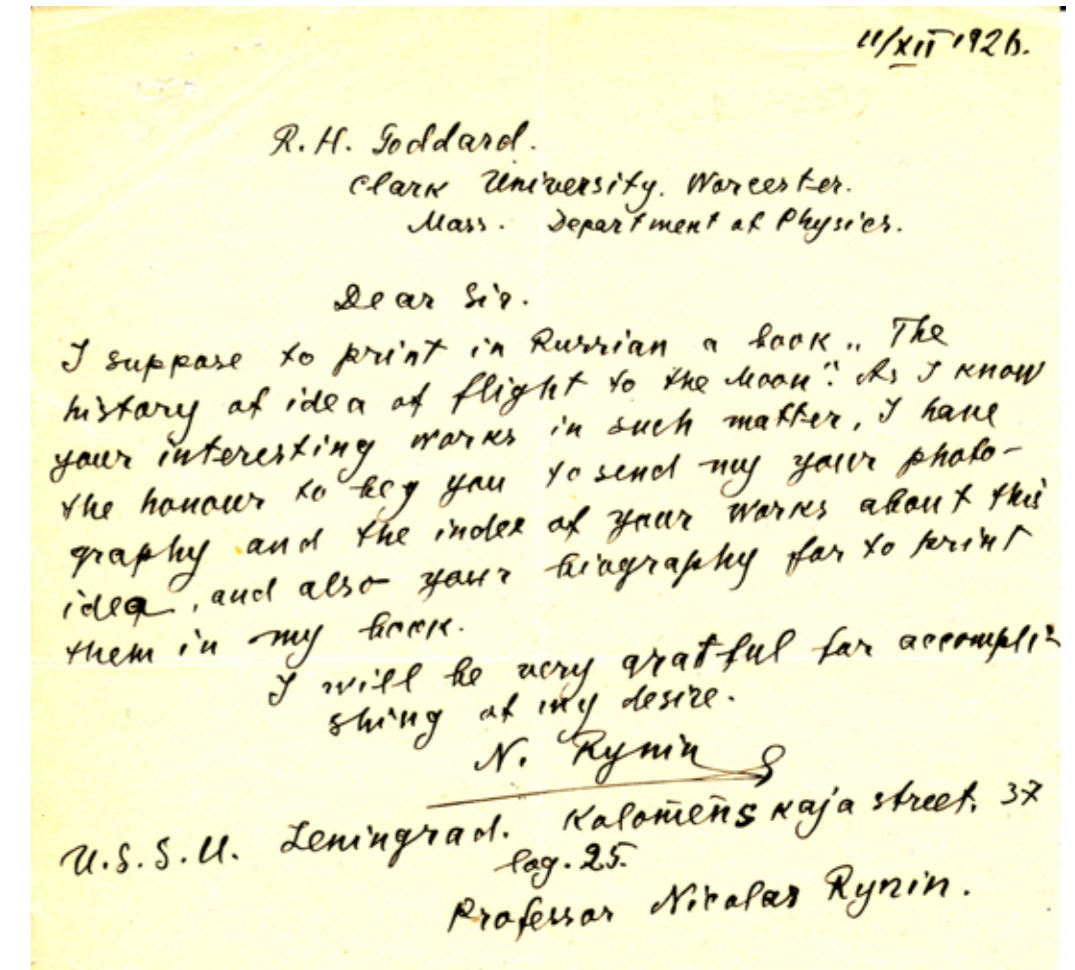 11/XII 1926.
R. H. Goddard.
Clark University. Worcester.
Mass. Department of Physics.
Dear Sir.
I suppose to print in Russian a book „The
history of idea of flight to the Moon". As I know
your interesting works in such matter, I have
the honour to beg you to send my your photo-
graphy and the index of your works about this
idea, and also your biography for to print
them in my book.
I will be very gratful for accompli-
shing of my desire.
N. Rynin
U.S.S.U. Leningrad. Kolomenskaja street. 37
log. 25.
Professor Nicolas Rynin.